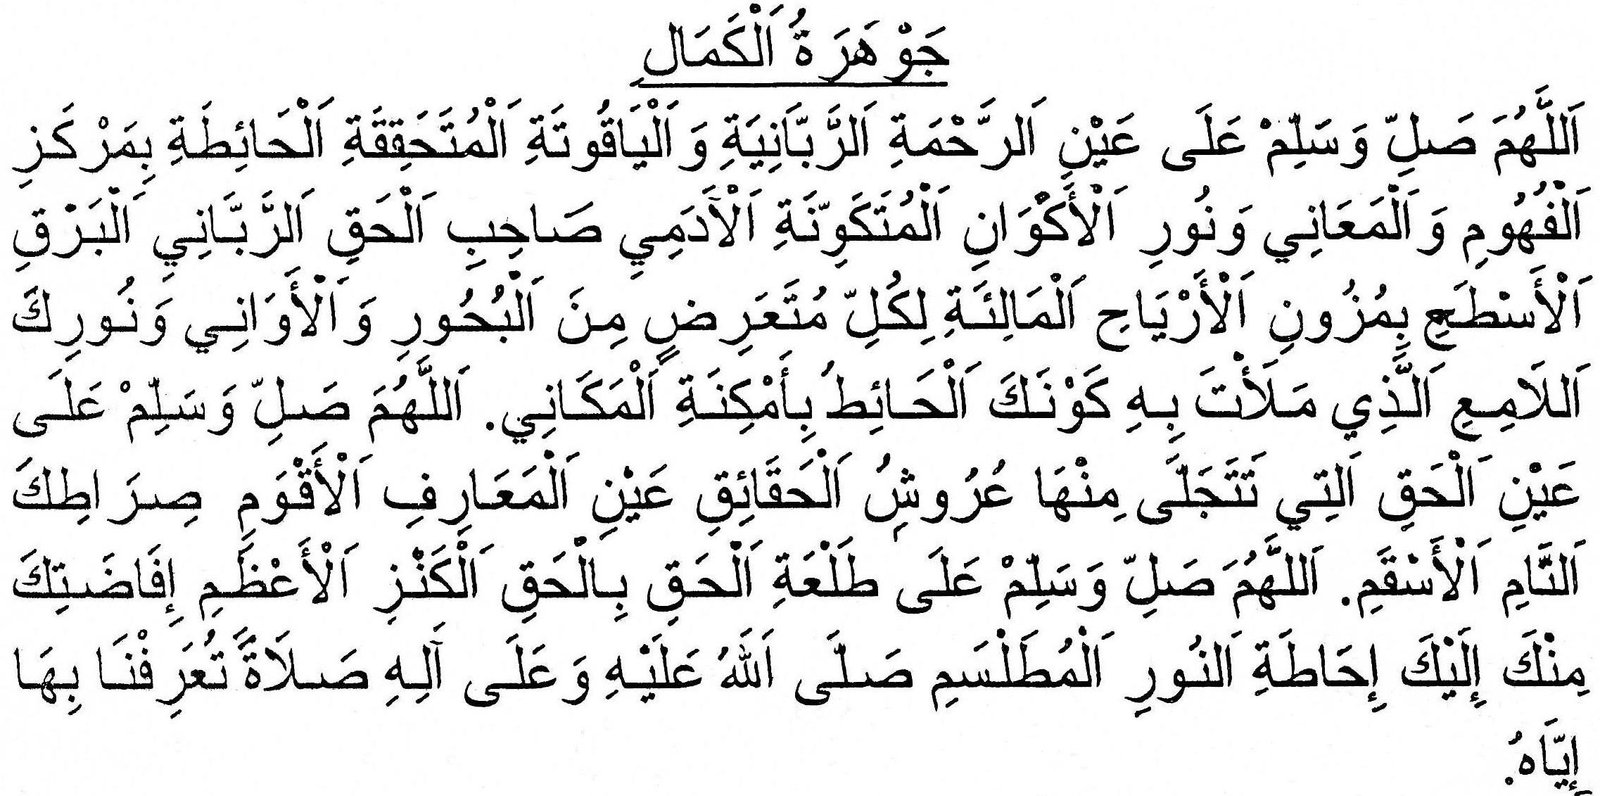 جَوْهَرَةُ اَلْكَمَالِ
اَللَّهُمَ صَلِّ وَسَلِّمْ عَلَى عَيْنِ اَلرَّحْمَةِ اَلرَّبَّانِيَةِ وَاَلْيَاقُوتَةِ اَلْمُتَحَقِقَةِ اَلْحَائِطَةِ بِمَرْكَزِ
اَلْفُهُومِ وَاَلْمَعَانِي وَنُورِ اَلْأَكْوَانِ اَلْمُتَكَوِنَّةِ اَلْآدَمِيِ صَاحِبِ اَلْحَقِ اَلرَّبَّانِيِ اَلْبَرْقِ
اَلْأَسْطَعِ بِمُزُونِ اَلْأَرْيَاحِ اَلْمَالِئَةِ لِكُلِّ مُتَعَرِضٍ مِنَ اَلْبُحُورِ وَاَلْأَوَانِي وَنُورِكَ
اَللَامِعِ اَلَّذِي مَلَأْتَ بِهِ كَوْنَكَ اَلْحَائِطُ بِأَمْكِنَةِ اَلْمَكَانِي. اَللَّهُمَ صَلِّ وَسَلِّمْ عَلَى
عَيْنِ اَلْحَقِ اَلتِي تَتَجَلَّى مِنْهَا عُرُوشُ اَلْحَقَائِقِ عَيْنِ اَلْمَعَارِفِ اَلْأَقْوَمِ صِرَاطِكَ
اَلتَّامِ اَلْأَسْقَمِ. اَللَّهُمَ صَلِّ وَسَلِّمْ عَلَى طَلْعَةِ اَلْحَقِ بِالْحَقِ اَلْكَنْزِ اَلْأَعْظَمِ إِفَاضَتِكَ
مِنْكَ إِلَيْكَ إِحَاطَةِ اَلنُورِ اَلْمُطَلْسَمِ صَلَّى اَللهُ عَلَيْهِ وَعَلَى آلِهِ صَلَاةً تُعَرِفْنَا بِهَا
إِيَّاهُ.